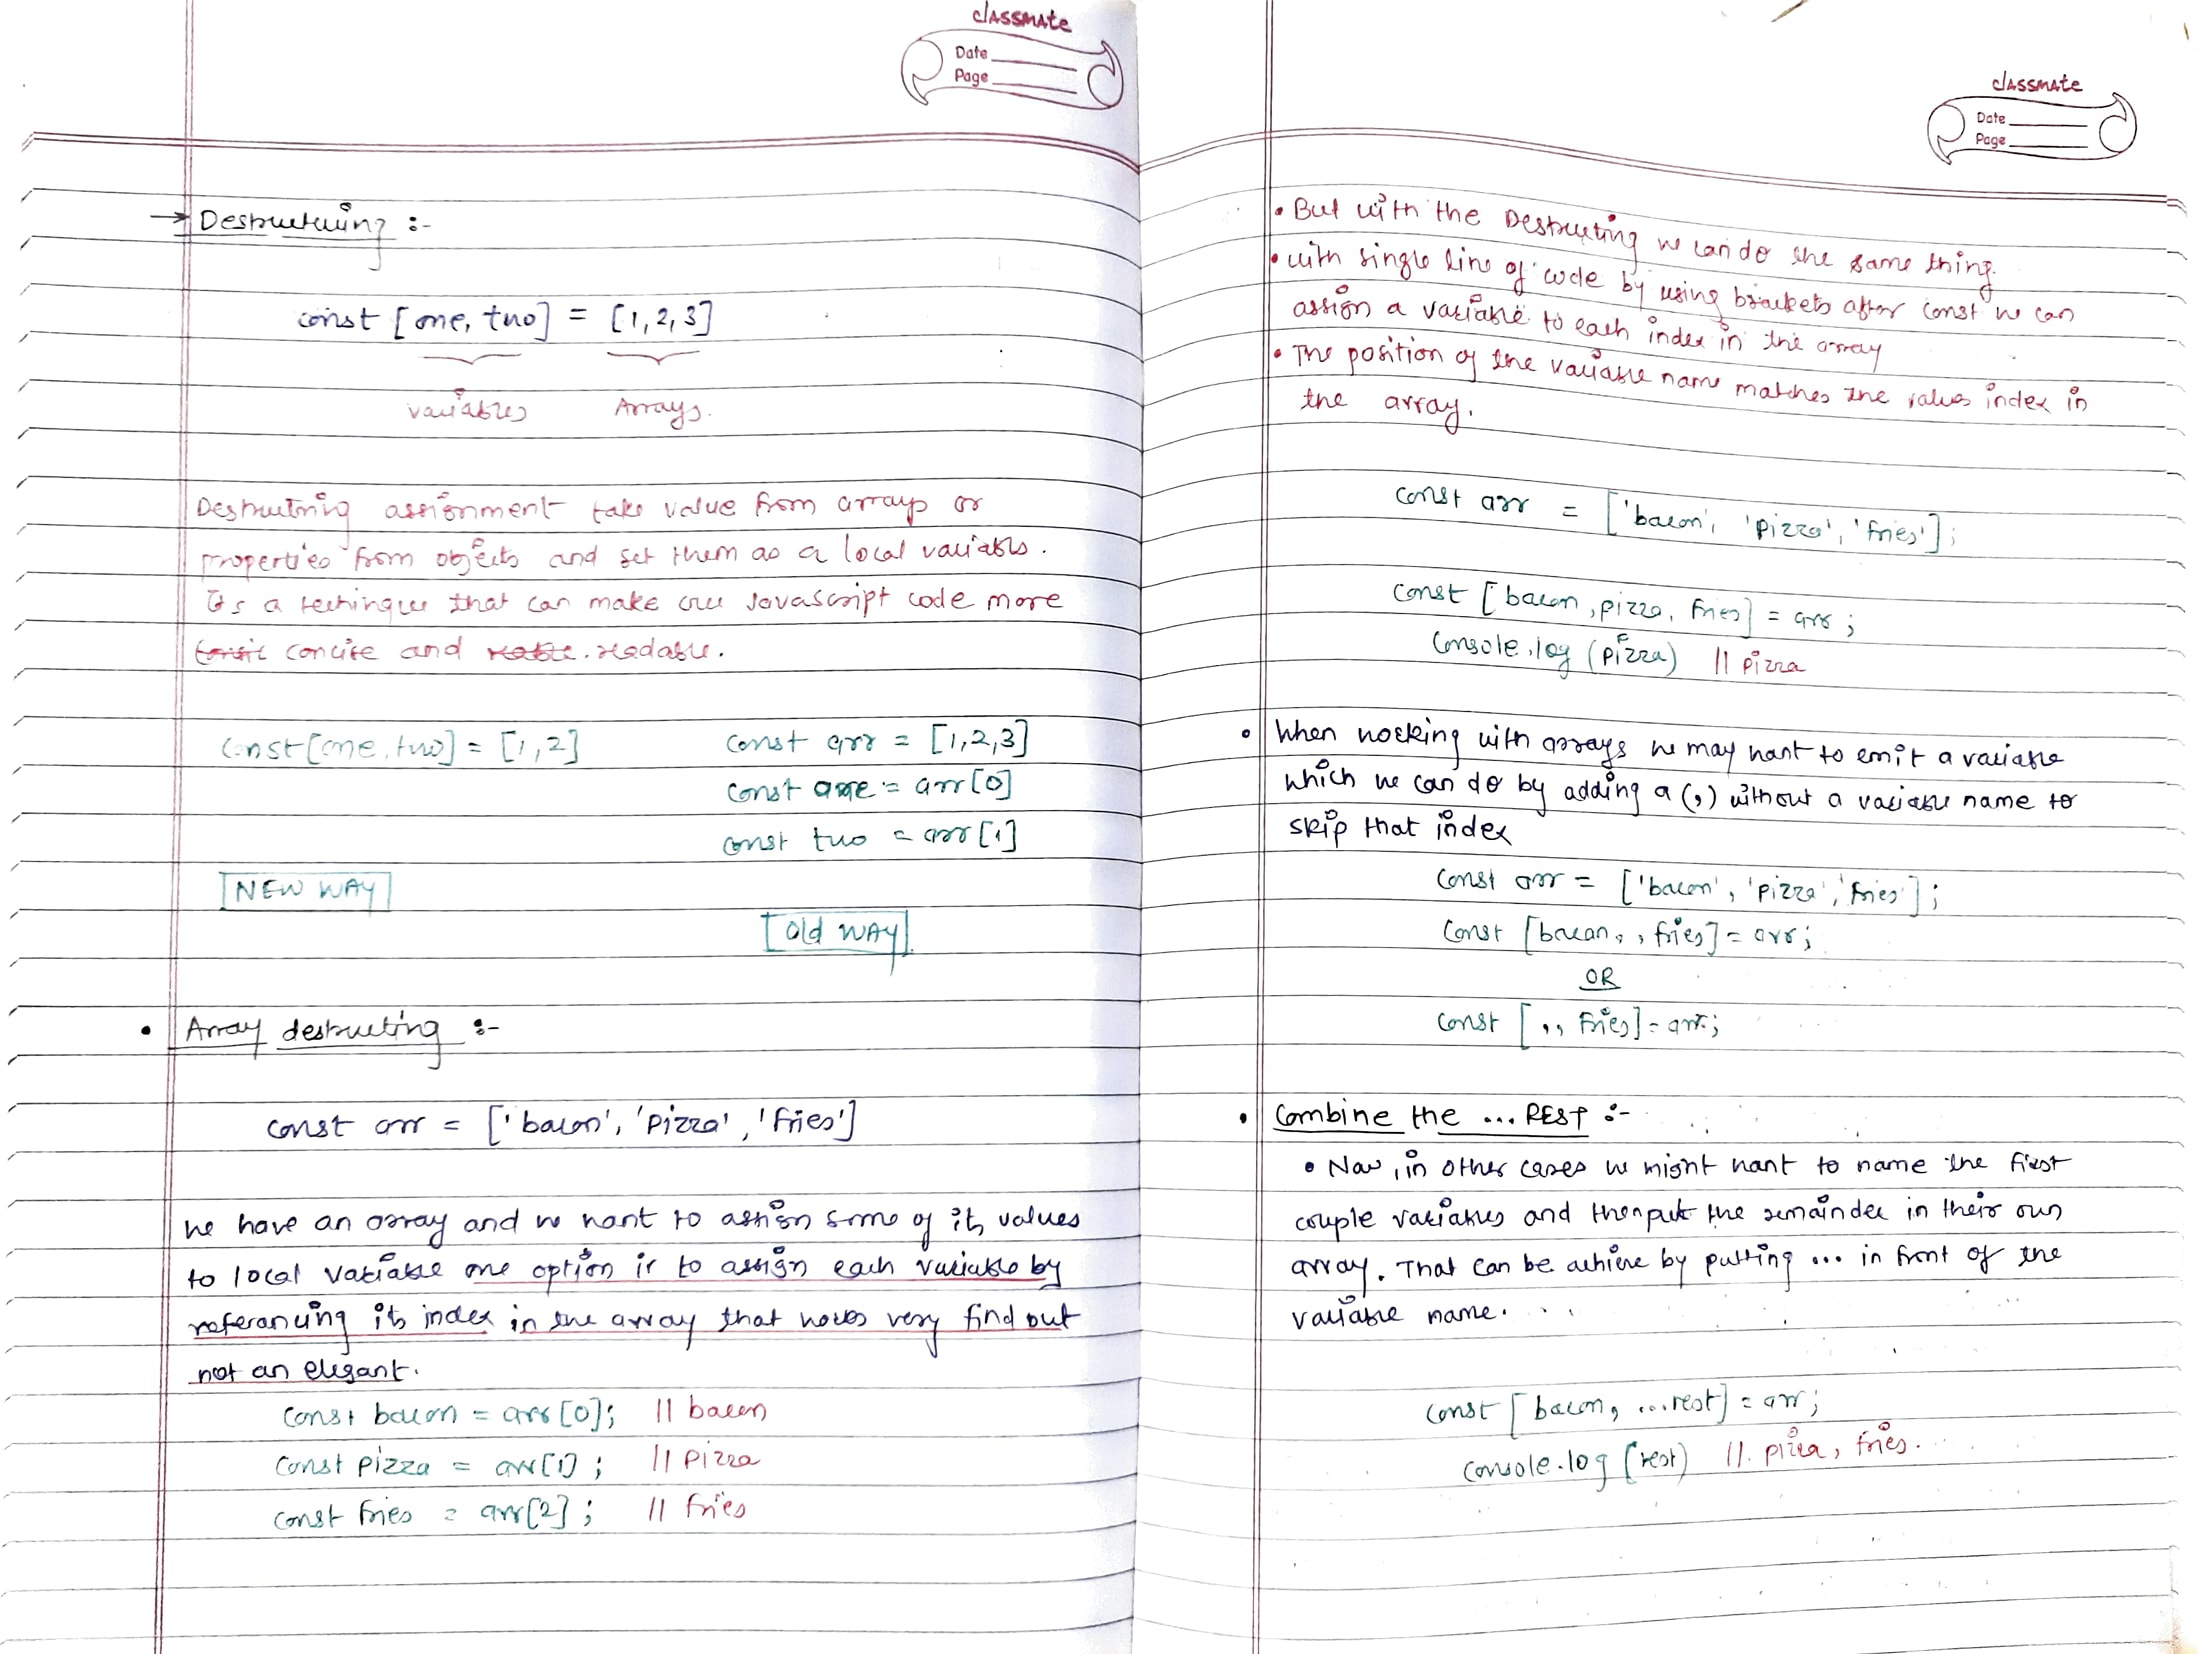 classmate
Date
Page
→ Destructuring :-
const [one, two] = [1,2,3]
variables Arrays.
Destructring assignment take value from arrays or
properties from objects and set them as a local variables.
It's a techinques that can make our Javascript code more
concise and readable.
const[one,two] = [1,2] const arr = [1,2,3]
const one = arr[0]
const two = arr[1]
NEW WAY
Old WAY
• Array destructing :-
const arr = ['bacon', 'pizza', 'fries']
we have an array and we want to assign some of its values
to local variable one option is to assign each variable by
referancing its index in the array that works very find but
not an elegant.
const bacon = arr[0]; // bacon
const pizza = arr[1]; // pizza
const fries = arr[2]; // fries
classmate
Date
Page
• But with the Destructing we can do the same thing.
• with single line of code by using brackets after const we can
assign a variable to each index in the array
• The position of the variable name matches the values index in
the array.
const arr = ['bacon', 'pizza', 'fries'];
const [bacon, pizza, fries] = arr;
console.log (pizza) // pizza
• When working with arrays we may want to emit a variable
which we can do by adding a (,) without a variable name to
skip that index
const arr = ['bacon', 'pizza', 'fries'];
const [bacon, , fries] = arr;
OR
const [,, fries] = arr;
• Combine the ... REST :-
• Now, in other cases we might want to name the first
couple variables and then put the remainder in their own
array. That can be achieve by putting ... in front of the
variable name.
const [bacon, ...rest] = arr;
console.log (rest) // pizza, fries.